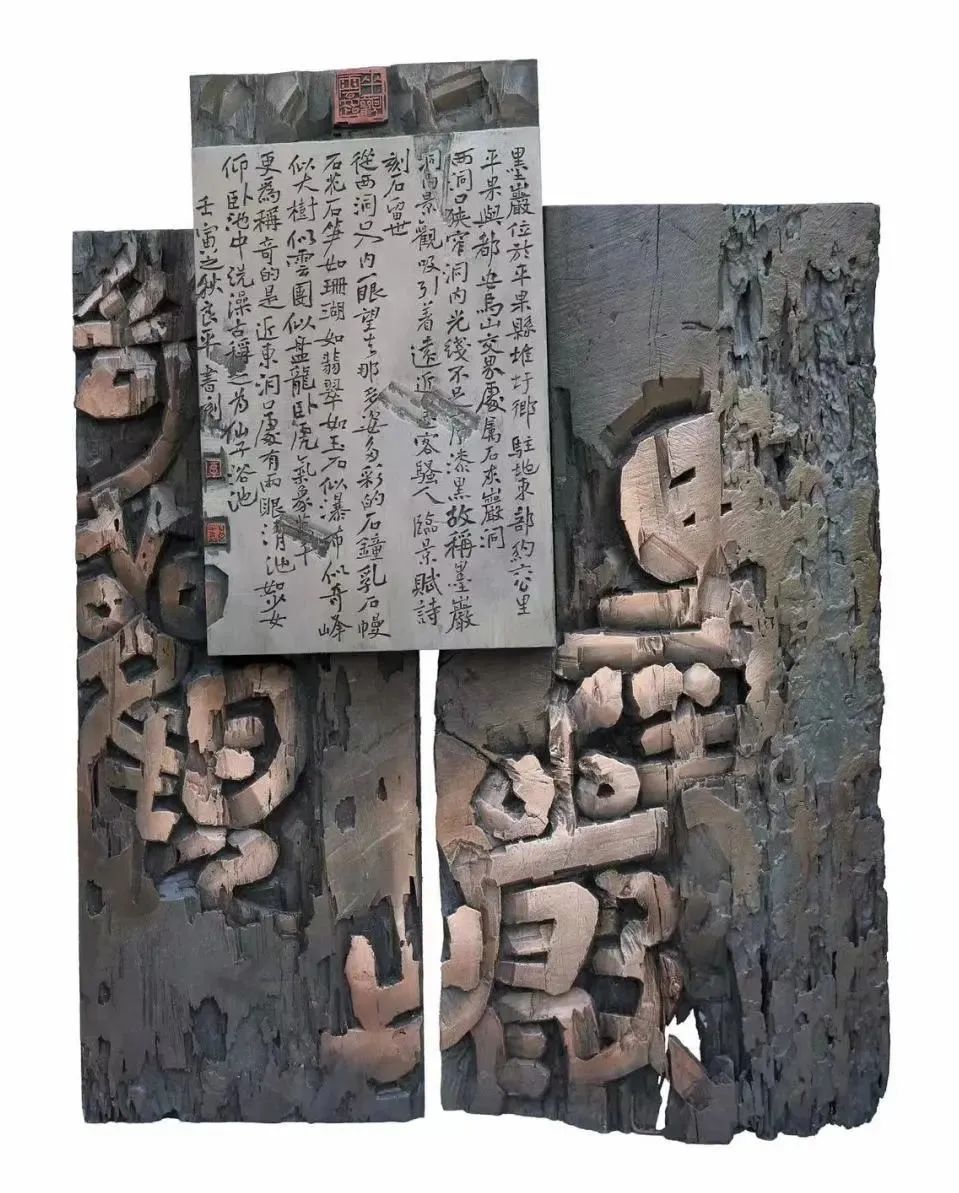 墨巖
觀
墨巖位於平果縣堆圩鄉駐地東部約六公里
平果與都安馬山交界處属石灰巖洞
西洞口狹窄洞内光线不漆黑故稱墨巖
洞内景觀吸引着遠近客騷人臨景賦詩
刻石留世
從西洞口入内一眼望去那多姿多彩的石鐘乳石幔
石花石笋如珊瑚如翡翠如玉石似瀑布似奇峰
似大樹似雲團似盘龍卧虎氣象千
更為稱奇的是近東洞口處有兩眼清池如少女
仰卧池中洗澡古稱之为仙子浴池
壬寅之秋良平書刻